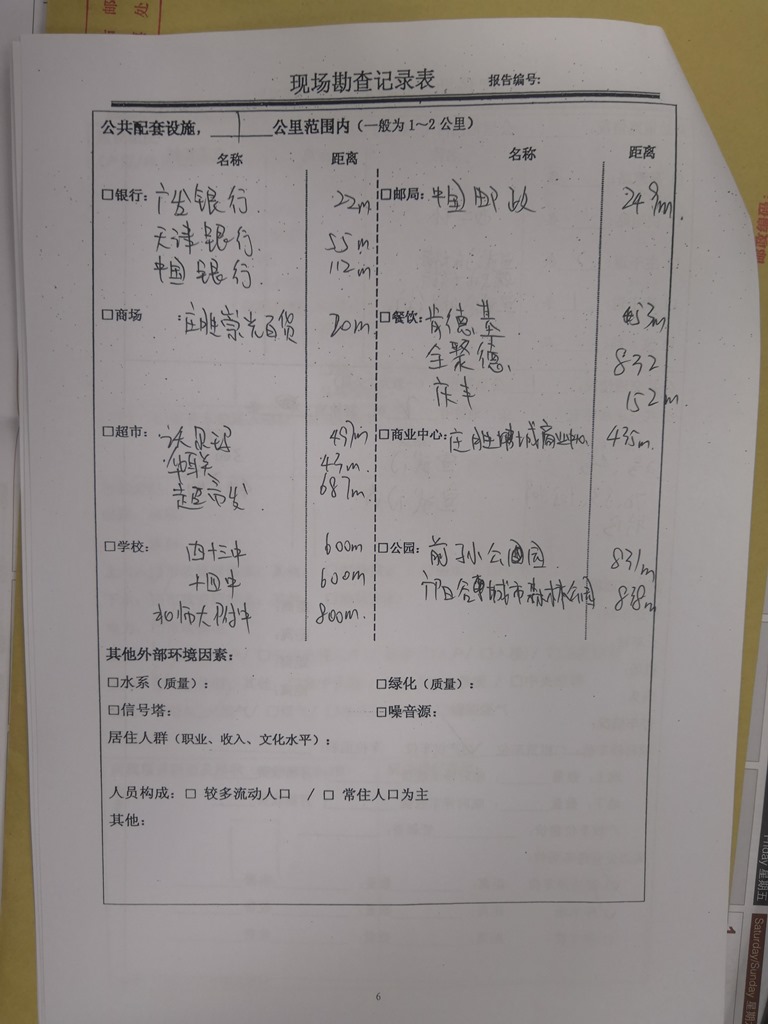 现场勘查记录表 报告编号:
公共配套设施，1公里范围内（一般为1～2公里）
名称 距离 名称 距离
□银行: 广发银行 22m □邮局: 中国邮政 249m
天津银行 55m
中国银行 112m
□商场 :庄胜崇光百货 20m □餐饮: 肯德基 453m
全聚德 832
庆丰 152m
□超市: 沃尔玛 497m □商业中心: 庄胜 城商业中心 435m
华联 43m
超市发 687m
□学校: 四十三中 600m □公园: 前孙公园 831m
十四中 600m 城市森林公园 838m
北师大附中 800m
其他外部环境因素：
□水系（质量）： □绿化（质量）：
□信号塔： □噪音源：
居住人群（职业、收入、文化水平）：
人员构成：□ 较多流动人口 / □ 常住人口为主
其他：
6
Friday 星期五
Saturday/Sunday 星期
1